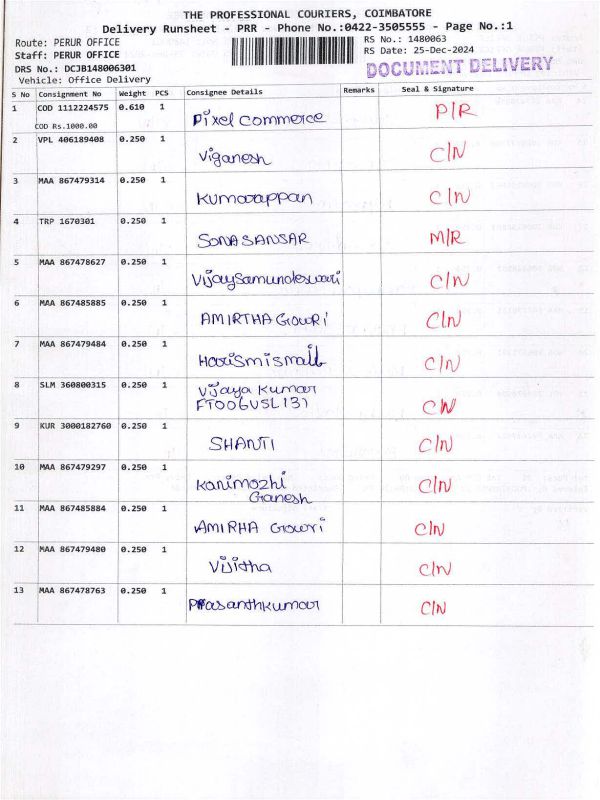 THE PROFESSIONAL COURIERS, COIMBATORE
Delivery Runsheet - PRR - Phone No.:0422-3505555 - Page No.:1
Route: PERUR OFFICE RS No.: 1480063
Staff: PERUR OFFICE RS Date: 25-Dec-2024
DRS No.: DCJB148006301 DOCUMENT DELIVERY
Vehicle: Office Delivery
S No Consignment No Weight PCS Consignee Details Remarks Seal & Signature
1 COD 1112224575 0.610 1 Pixel commerce P/R
COD Rs.1000.00
2 VPL 406189408 0.250 1 Viganesh C/N
3 MAA 867479314 0.250 1 Kumarappan C/N
4 TRP 1670301 0.250 1 SONA SANSAR M/R
5 MAA 867478627 0.250 1 Vijaysamundeswari C/N
6 MAA 867485885 0.250 1 AMIRTHA GOWRI C/N
7 MAA 867479484 0.250 1 C/N
8 SLM 360800315 0.250 1 Vijaya Kumar C/N
FT006VSL131
9 KUR 3000182760 0.250 1 SHANTI C/N
10 MAA 867479297 0.250 1 Kanimozhi C/N
Ganesh
11 MAA 867485884 0.250 1 AMIRHA Gowri C/N
12 MAA 867479480 0.250 1 Vijitha C/N
13 MAA 867478763 0.250 1 Prasanthkumar C/N